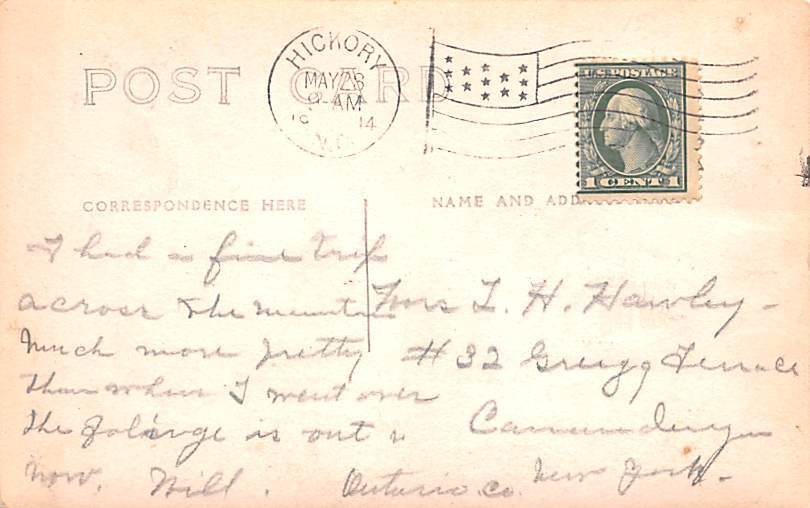 POST CARD
HICKORY
MAY 28
9-AM
19 14
N.C.
U.S. POSTAGE
1 CENT 1
CORRESPONDENCE HERE
NAME AND ADD
I had a fine trip
across the mountain
much more pretty
than when I went over
the folage is out
now. Will.
Mrs L. H. Hawley -
#32 Gregg Terrace
Canandaigua
Ontario. Co. New York.